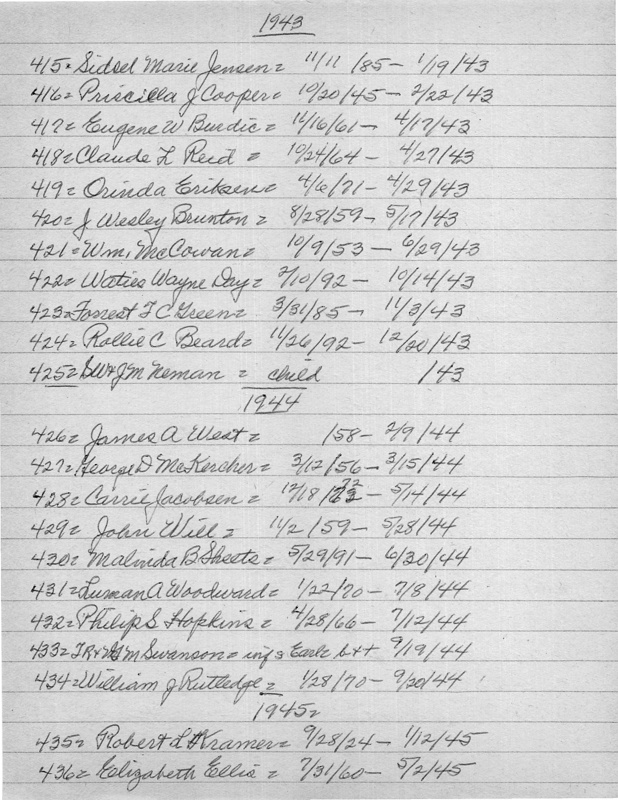 1943
415= Sidsel Marie Jensen = 11/11/85 - 1/19/43
416= Priscilla J Cooper = 10/20/45 - 2/22/43
417= Eugene W Burdic = 11/16/61 - 4/17/43
418= Claude L Reid = 10/24/64 - 4/27/43
419= Orinda Eriksen = 4/6/71 - 4/29/43
420= J Wesley Brunton = 8/28/59 - 5/17/43
421= Wm. McCowan = 10/9/53 - 6/29/43
422= Waties Wayne Day = 2/10/92 - 10/14/43
423= Forrest F C Green = 3/31/85 - 11/3/43
424= Rollie C Beard = 11/26/92 - 12/20/43
425= & J M Neman = child /43
1944
426= James A West = /58 - 2/9/44
427= George D McKercher = 3/12/56 - 3/15/44
428= Carrie Jacobsen = 12/18/ - 5/14/44
429= John Will = 11/2/59 - 5/28/44
430= Malinda B Sheets = 5/29/91 - 6/30/44
431= Luman A Woodward = 1/22/70 - 7/8/44
432= Philip S Hopkins = 4/28/66 - 7/12/44
433= Swanson = Earl 9/19/44
434= William J Rutledge = 1/28/70 - 9/20/44
1945=
435= Robert L Kramer = 9/28/24 - 1/12/45
436= Elizabeth Ellis = 7/31/60 - 5/2/45